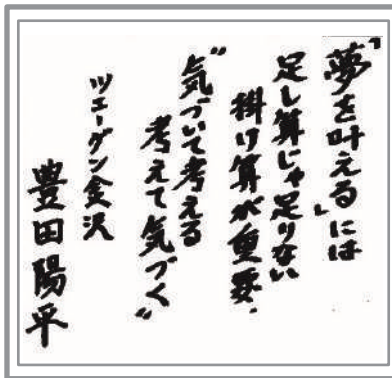 「夢を叶える」には
足し算じゃ足りない
掛け算が重要.
“気づいて考える
考えて気づく”
ツエーゲン金沢
豊田陽平